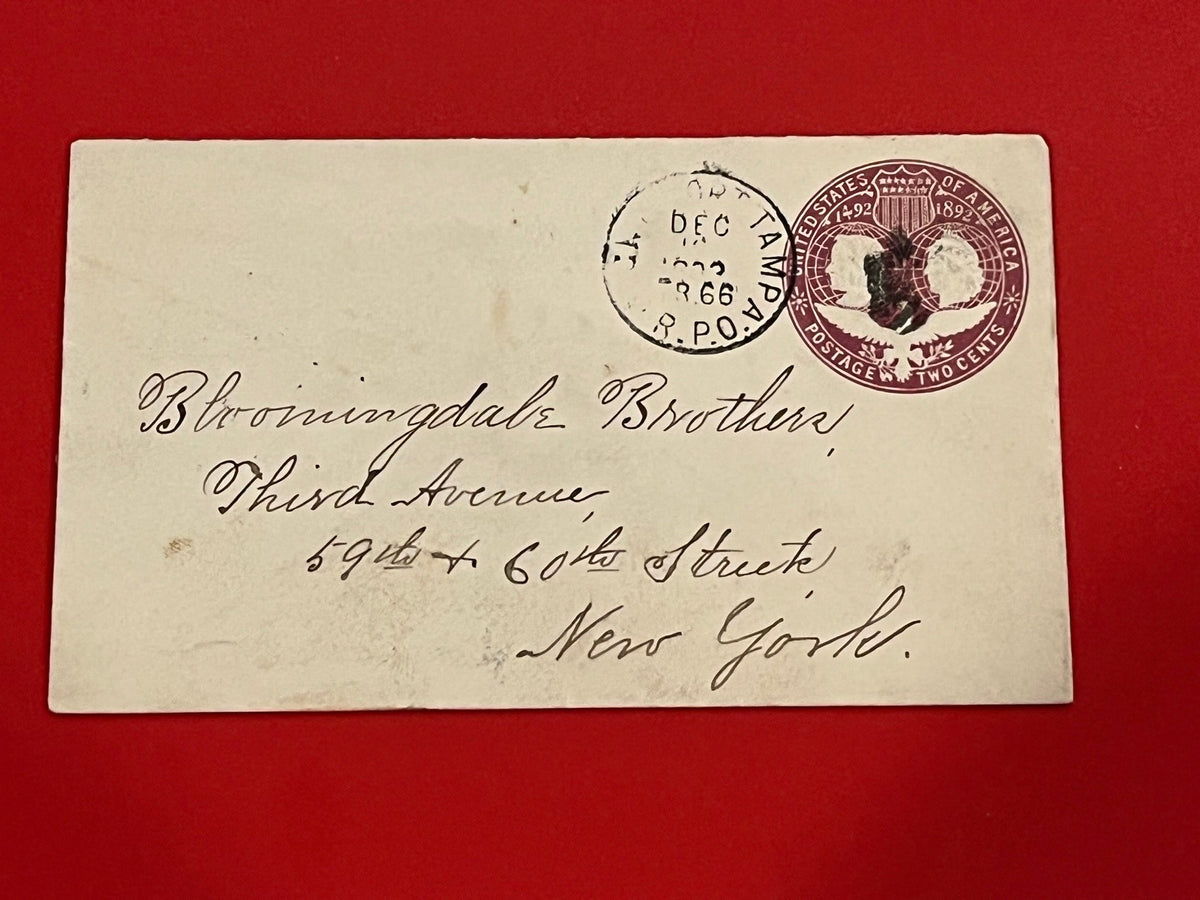 ORT TAMPA
DEC
R.66
R.P.O.
UNITED STATES OF AMERICA
1492 1892
POSTAGE TWO CENTS
Bloomingdale Brothers,
Third Avenue,
59th & 60th Streets
New York.